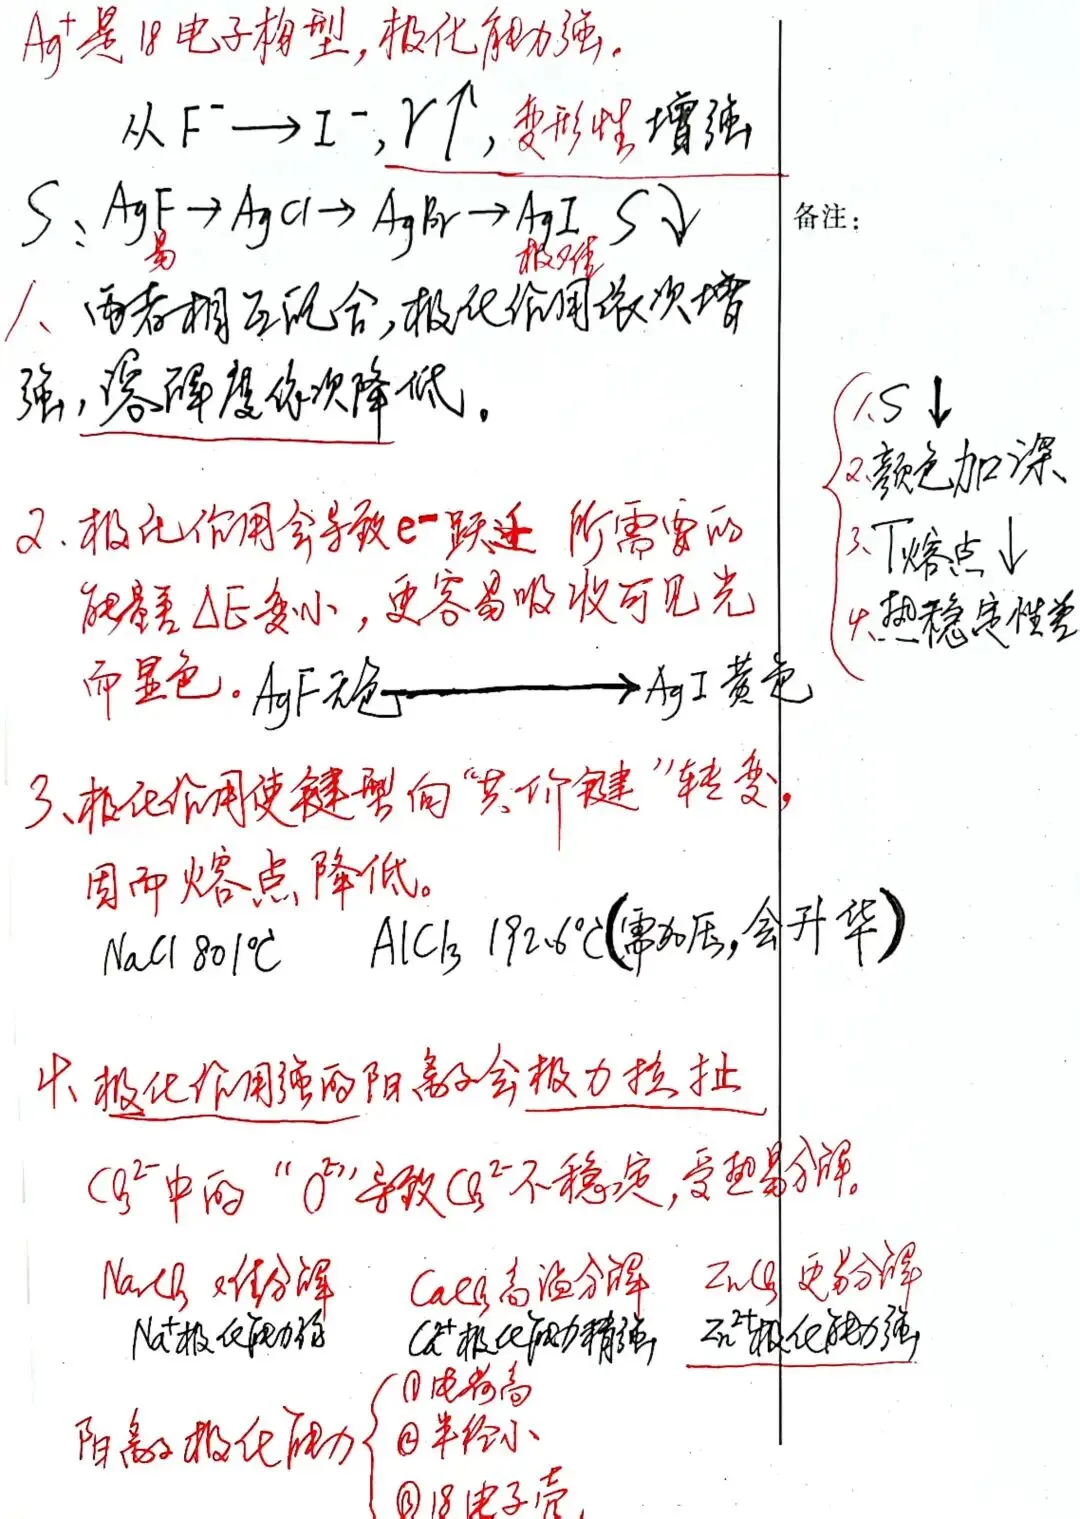 Ag⁺是18电子构型,极化能力强。
从F⁻→I⁻,r↑,变形性增强
S: AgF→AgCl→AgBr→AgI S↓
易 极难
备注:
1、两者相互配合,极化作用依次增
强,溶解度依次降低。
1.S↓
2.颜色加深
3、T熔点↓
4、热稳定性差
2.极化作用会导致e⁻跃迁所需要的
能量差△E变小,更容易吸收可见光
而显色。AgF无色→AgI黄色
3、极化作用使键型向“共价键”转变,
因而熔点降低。
NaCl 801℃ AlCl₃ 192.6℃(需加压,会升华)
4、极化作用强的阳离子会极力拉扯
CO₃²⁻中的“O²⁻”导致CO₃²⁻不稳定,受热易分解。
Na₂CO₃难分解 CaCO₃高温分解 ZnCO₃更易分解
Na⁺极化能力弱 Ca²⁺极化能力稍强 Zn²⁺极化能力强
阳离子极化能力
①电荷高
②半径小
③18电子壳.